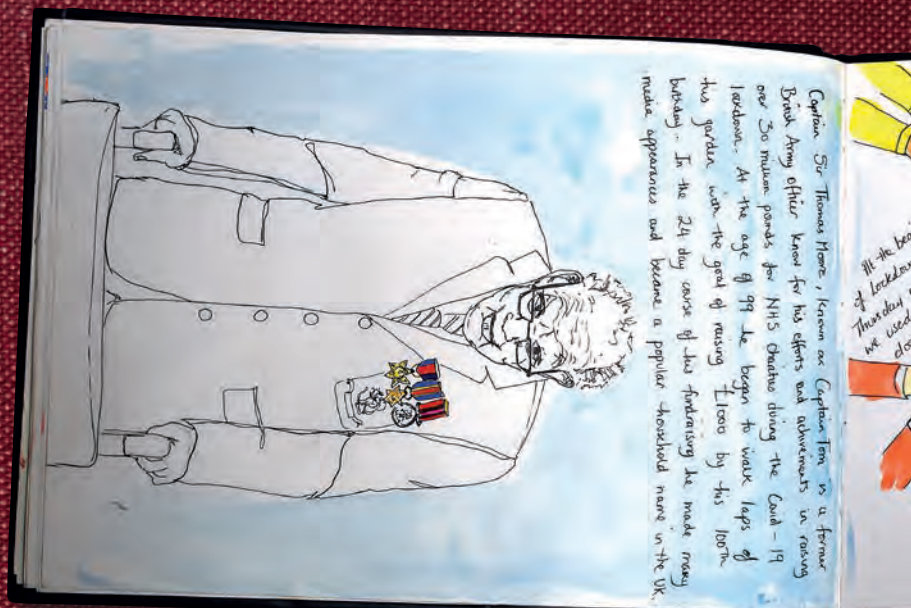 Captain Sir Thomas Moore, known as Captain Tom is a former
British Army officer know for his efforts and achivements in raising
over 30 million pounds for NHS charites during the Covid-19
lockdown. At the age of 99 he began to walk laps of
his garden with the goal of raising £1000 by his 100th
birthday. In the 24 day course of his fundraising he made many
media appearances and became a popular household name in the UK.
At the
of lockdow
Thursday
we used